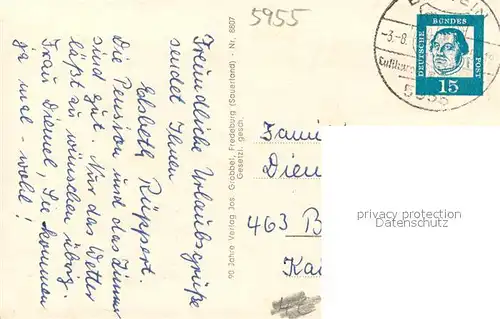 5955
Freundliche Urlaubsgrüße
sendet Ihnen
Elsbeth Rüppert.
Die Pension und das Zimmer
sind gut. Nur das Wetter
läßt zu wünschen übrig.
Frau Diemel, Sie kommen
ja mal - wohl!
90 Jahre Verlag Jos. Grobbel, Fredeburg (Sauerland) - Nr. 8807
Gesetzl. gesch.
-3.-8.
Luftkur
DEUTSCHE BUNDES POST
15
Fami
Diem
463 B
Kai
privacy protection